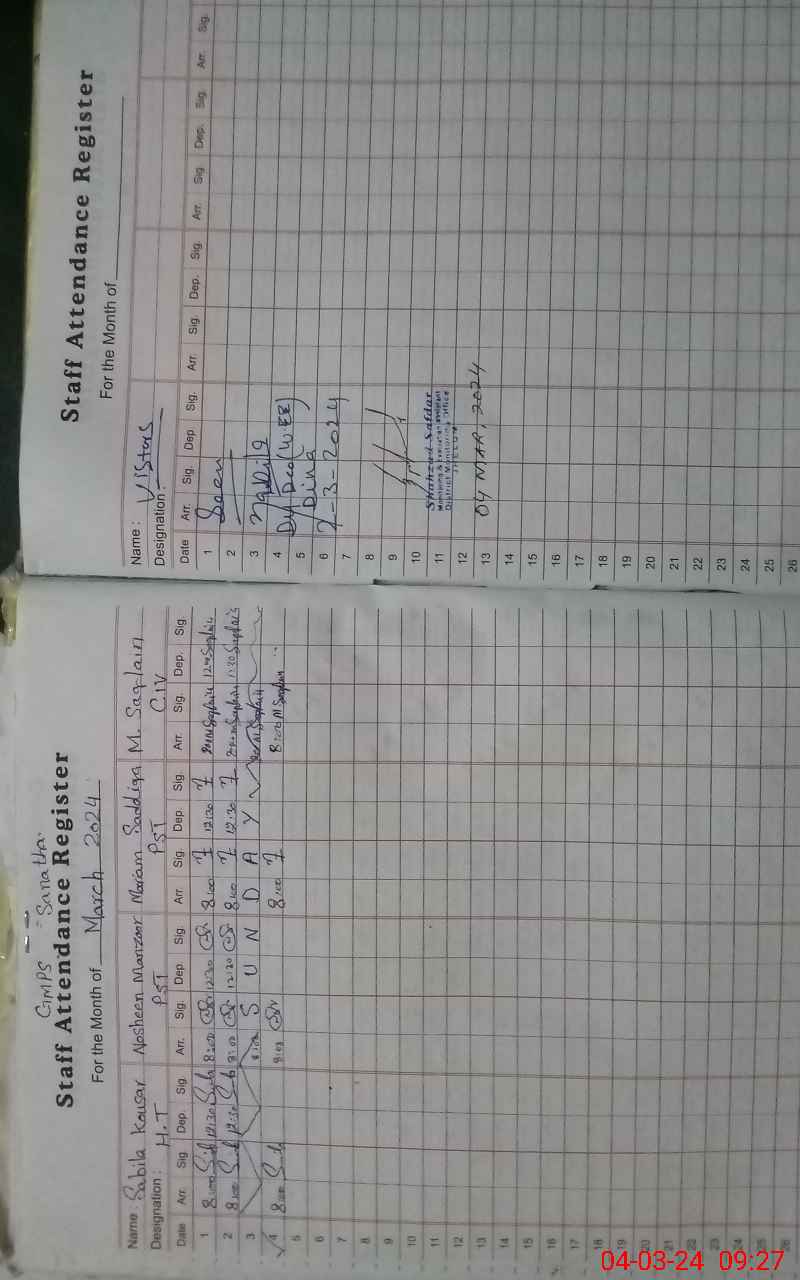 GMPS Sanatha
Staff Attendance Register
For the Month of March 2024
Name : Sabila Kousar Nosheen Manzoor Mariam Saddiqa M. Saqlain
Designation : H.T PST PST CIV
Date Arr. Sig. Dep. Sig. Arr. Sig. Dep Sig. Arr Sig. Dep Sig. Arr. Sig. Dep. Sig.
1 8:00 12:30 8:00 12:30 8:00 12:30
2 8:00 12:30 8:00 12:30 8:00 12:30
3 S U N D A Y
4 8:00 8:03 8:00 8:00 M Saqlain
5
6
7
8
9
10
11
12
13
14
15
16
17
18
19
20
21
22
23
24
25
26
Staff Attendance Register
For the Month of
Name : Vistors
Designation :
Date Arr. Sig. Dep. Sig. Arr. Sig. Dep. Sig. Arr. Sig Dep. Sig. Arr. Sig.
1 Seen
2
3
4 Dy Deo (W.EE)
5 Dina
6 2-3-2024
7
8
9
10
11 Shahzad Safdar
District Monitoring Office
12 JHELUM
13 04 MAR, 2024
14
15
16
17
18
19
20
21
22
23
24
25
26
04-03-24 09:27